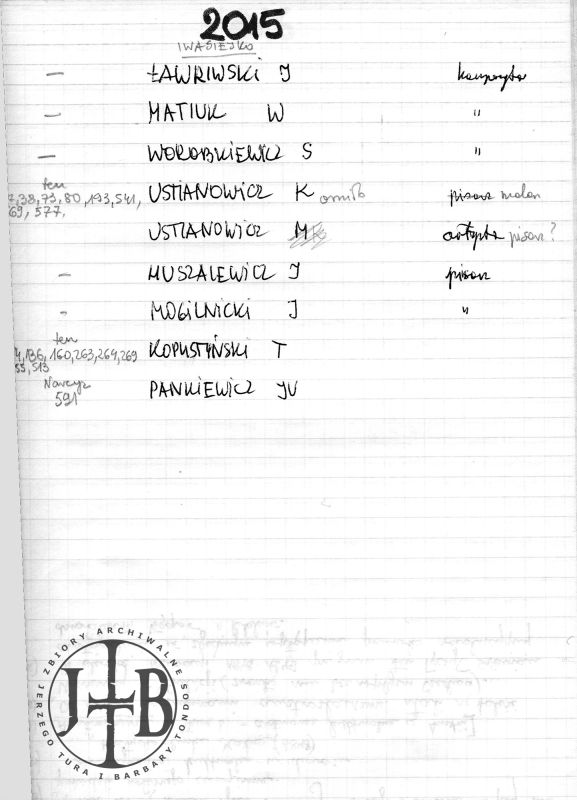 2015
IWASIEJKO
— ŁAWRIWSKI J
— MATIUK W "
— WOROBKIEWICZ S "
ten
,38,73,80,193,541, USTIANOWICZ K pisarz malarz
69, 577.
USTIANOWICZ M artysta pisarz?
— MUSZALEWICZ J pisarz
- MOGILNICKI J "
ten
,136,160,263,264,269 KOPUSTYŃSKI T
55,513
Narcyz
591 PANKIEWICZ JW
ZBIORY ARCHIWALNE
JERZEGO TURA I BARBARY TONDOS
JTB